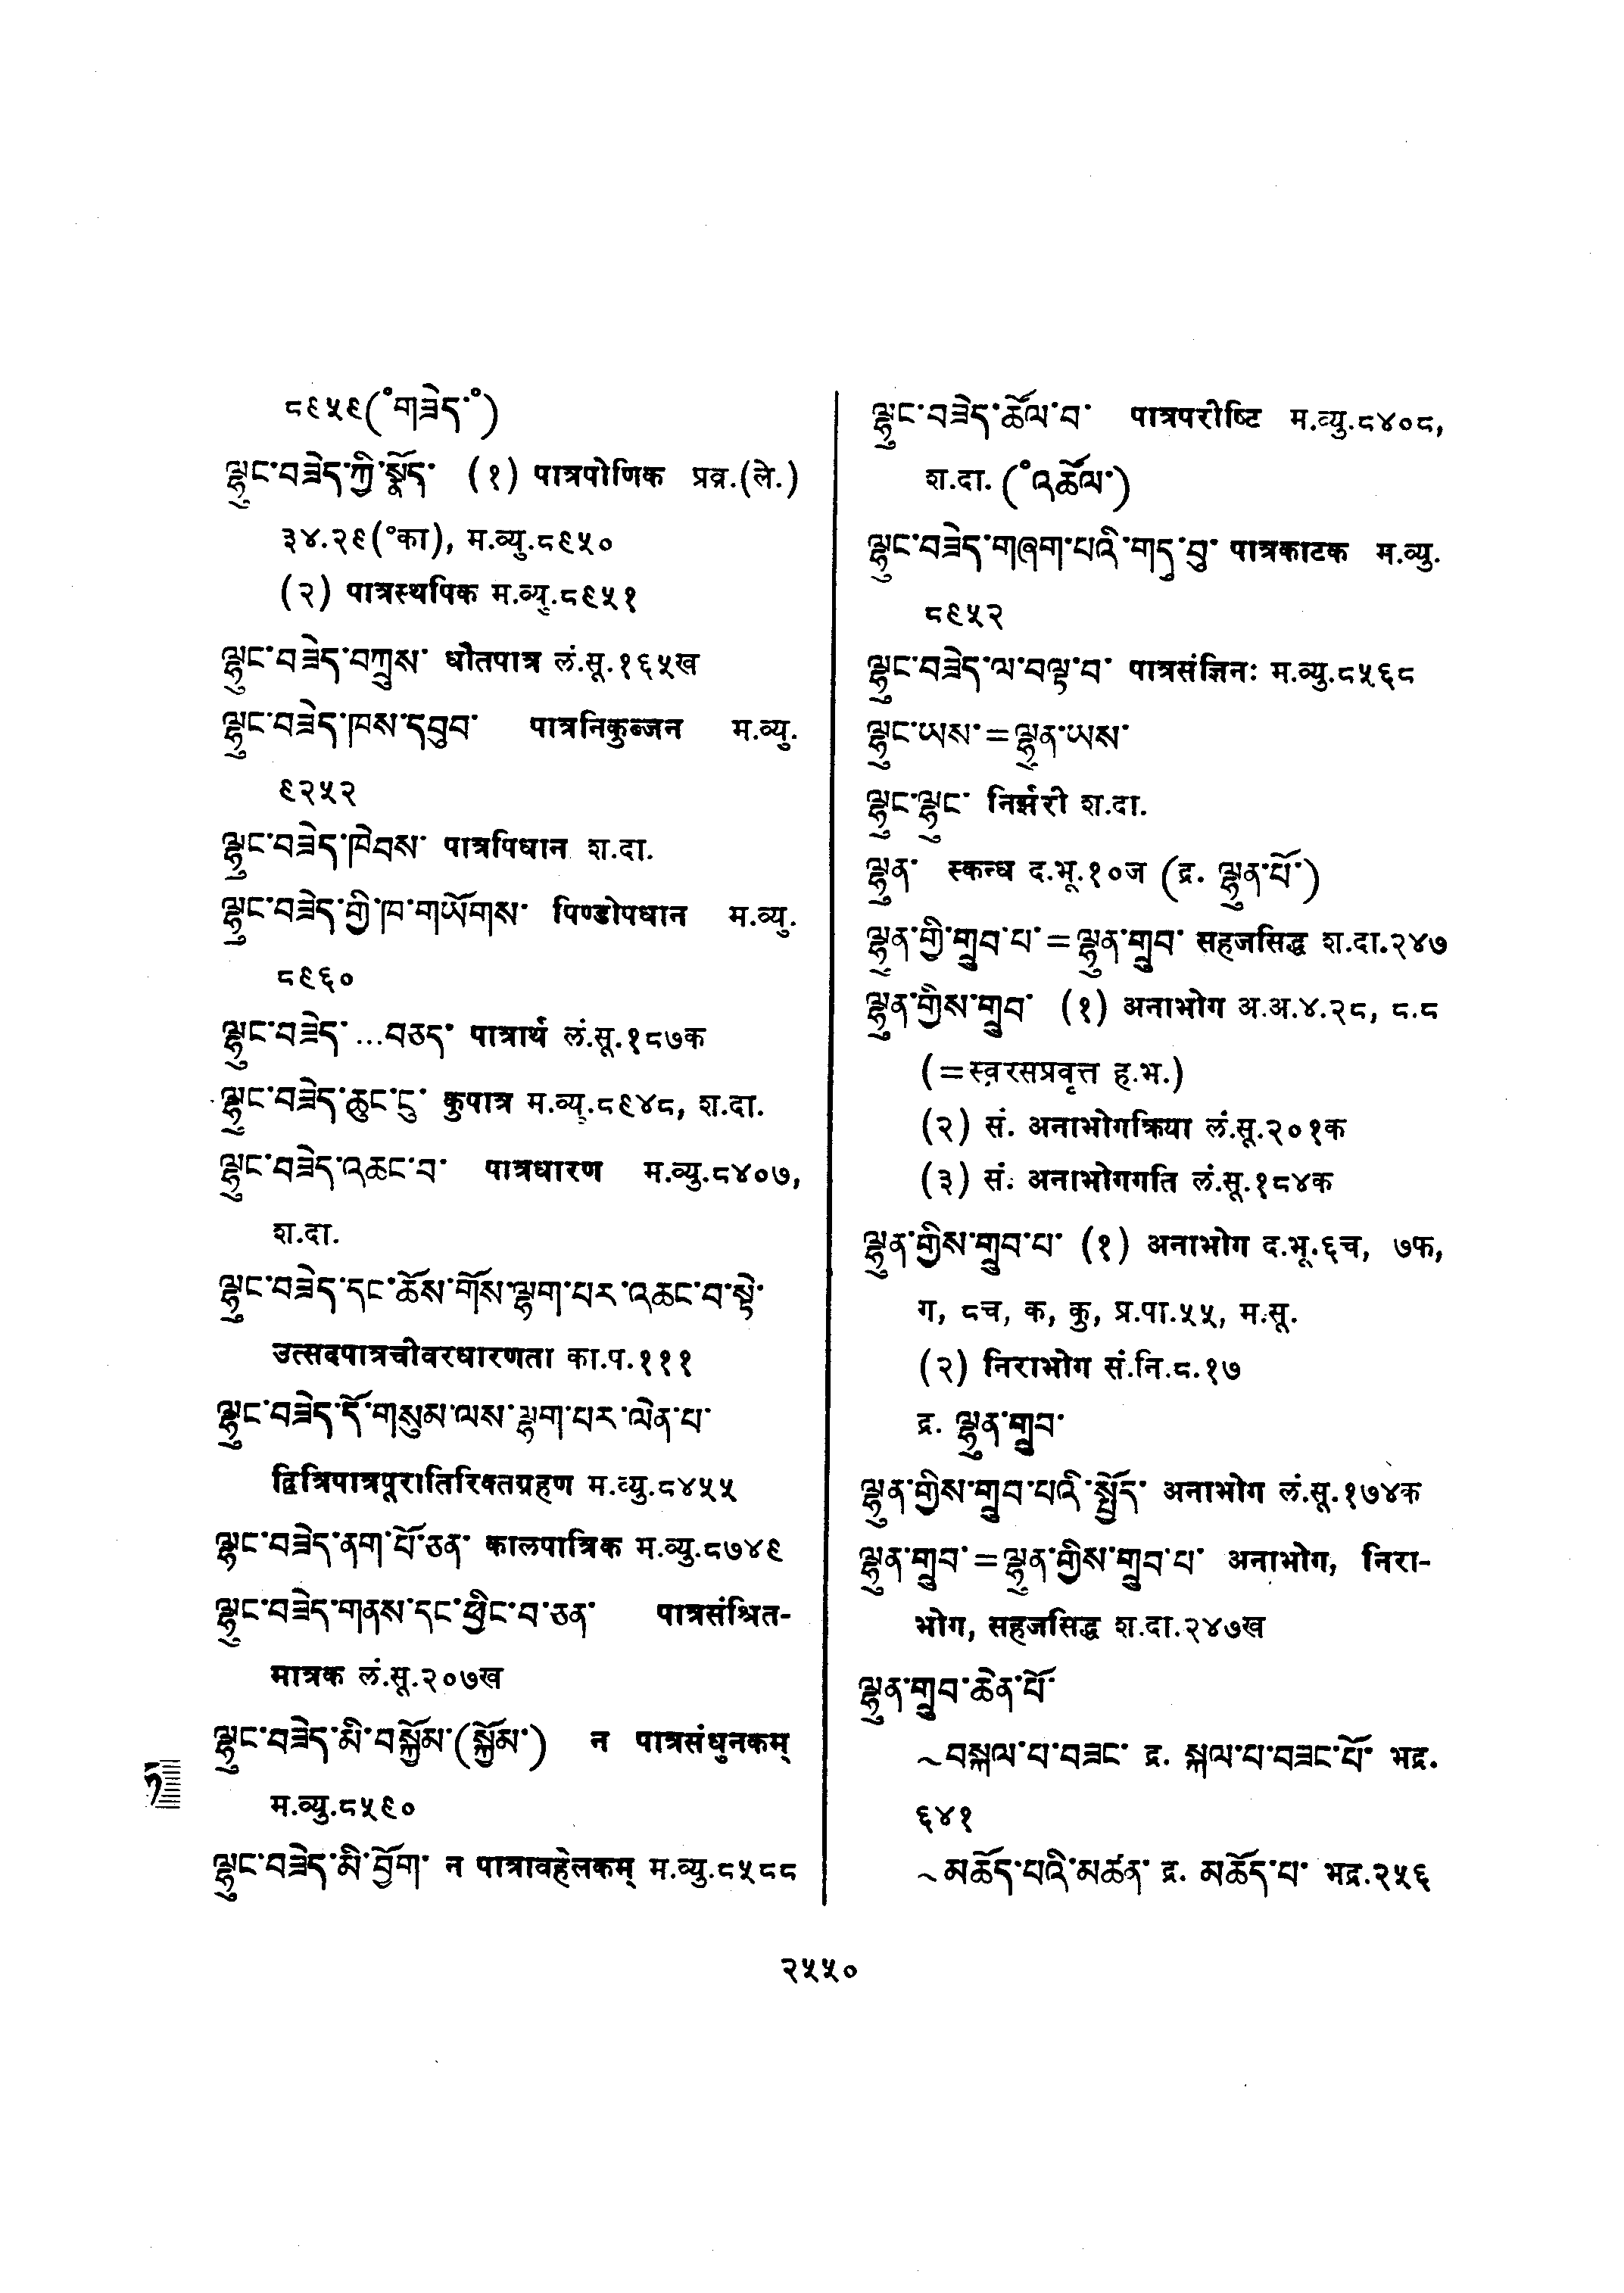 ८९५९(°གཟེད་°)
ལྷུང་བཟེད་ཀྱི་སྣོད་ (१) पात्रपोणिक प्रव्र.(ले.)
३४.२९(°का), म.व्यु.८९५०
(२) पात्रस्थपिक म.व्यु.८९५१
ལྷུང་བཟེད་བཀྲུས་ धौतपात्र लं.सू.१६५ख
ལྷུང་བཟེད་ཁས་དབུབ་ पात्रनिकुब्जन म.व्यु.
९२५२
ལྷུང་བཟེད་ཁེབས་ पात्रपिधान श.दा.
ལྷུང་བཟེད་གྱི་ཁ་གཡོགས་ पिण्डोपधान म.व्यु.
८९६०
ལྷུང་བཟེད་ ...བཅད་ पात्रार्थ लं.सू.१८७क
ལྷུང་བཟེད་ཆུང་ངུ་ कुपात्र म.व्यु.८९४८, श.दा.
ལྷུང་བཟེད་འཆང་བ་ पात्रधारण म.व्यु.८४०७,
श.दा.
ལྷུང་བཟེད་དང་ཆོས་གོས་ལྷག་པར་འཆང་བ་སྟེ་
उत्सदपात्रचीवरधारणता का.प.१११
ལྷུང་བཟེད་དོ་གསུམ་ལས་ལྷག་པར་ལེན་པ་
द्वित्रिपात्रपूरातिरिक्तग्रहण म.व्यु.८४५५
ལྷུང་བཟེད་ནག་པོ་ཅན་ कालपात्रिक म.व्यु.८७४९
ལྷུང་བཟེད་གནས་དང་ཕྱིང་བ་ཅན་ पात्रसंश्रित-
मात्रक लं.सू.२०७ख
ལྷུང་བཟེད་མི་བསྐྱོམ་(སྐྱོམ་) न पात्रसंधुनकम्
म.व्यु.८५९०
ལྷུང་བཟེད་མི་བྱོག་ न पात्रावहेलकम् म.व्यु.८५८८
ལྷུང་བཟེད་ཚོལ་བ་ पात्रपरीष्टि म.व्यु.८४०८,
श.दा. (°འཚོལ་)
ལྷུང་བཟེད་གཞག་པའི་གདུ་བུ་ पात्रकाटक म.व्यु.
८९५२
ལྷུང་བཟེད་ལ་བལྟ་བ་ पात्रसंज्ञिनः म.व्यु.८५६८
ལྷུང་ཡས་=ལྷུན་ཡས་
ལྷུང་ལྷུང་ निर्झरी श.दा.
ལྷུན་ स्कन्ध द.भू.१०ज (द्र. ལྷུན་པོ་)
ལྷུན་གྱི་གྲུབ་པ་=ལྷུན་གྲུབ་ सहजसिद्ध श.दा.२४७
ལྷུན་གྱིས་གྲུབ་ (१) अनाभोग अ.अ.४.२८, ८.८
(=स्वरसप्रवृत्त ह.भ.)
(२) सं. अनाभोगक्रिया लं.सू.२०१क
(३) सं. अनाभोगगति लं.सू.१८४क
ལྷུན་གྱིས་གྲུབ་པ་ (१) अनाभोग द.भू.६च, ७फ,
ग, ८च, क, कु, प्र.पा.५५, म.सू.
(२) निराभोग सं.नि.८.१७
द्र. ལྷུན་གྲུབ་
ལྷུན་གྱིས་གྲུབ་པའི་སྤྱོད་ अनाभोग लं.सू.१७४क
ལྷུན་གྲུབ་=ལྷུན་གྱིས་གྲུབ་པ་ अनाभोग, निरा-
भोग, सहजसिद्ध श.दा.२४७ख
ལྷུན་གྲུབ་ཆེན་པོ་
~བསྐལ་པ་བཟང་ द्र. སྐལ་པ་བཟང་པོ་ भद्र.
६४१
~མཆོད་པའི་མཚན་ द्र. མཆོད་པ་ भद्र.२५६
२५५०